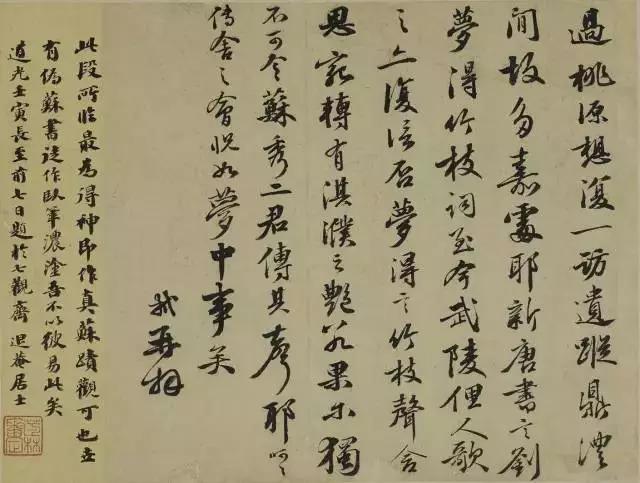 過桃源想復一訪遺蹤鼎澧
間故多嘉處耶新唐書言劉
夢得竹枝詞至今武陵俚人歌
之亦復信否夢得言竹枝聲含
思宛轉有淇濮之艷若果尔獨
不可令蘇秀二君傳其聲耶呵呵
傳舍之會怳如夢中事矣
軾再拜
此段所臨最為得神即作真蘇蹟觀可也世
有偽蘇書徒作臥筆濃塗吾不以彼易此矣
道光壬寅長至前七日題於七觀齋 退菴居士